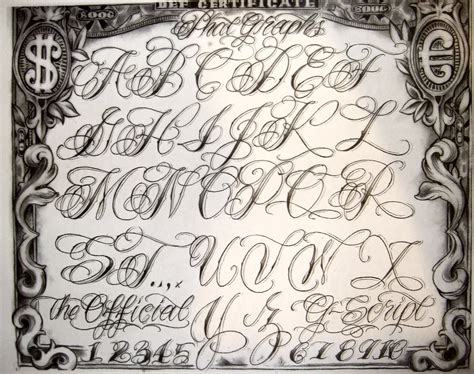 DEF CERTIFICATE
5000 5000
Phat Graphs
$ €
A B C D E F
G H I J K L
M N O P Q R
S T . , , U V W X
the Official Y Z G-Script
1 2 3 4 5 6 7 8 9 10